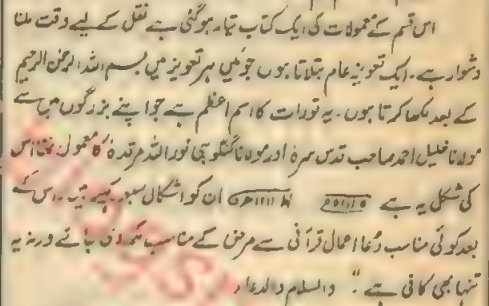 اس قسم کے معمولات کی ایک کتاب تیار ہوگئی ہے نقل کے لیے وقت ملنا
دشوار ہے۔ ایک تعویذ عام بتلاتا ہوں جو میں ہر تعویذ میں بسم اللہ الرحمٰن الرحیم
کے بعد لکھا کرتا ہوں۔ یہ تورات کا اسم اعظم ہے جو اپنے بزرگوں میں سے
مولانا خلیل احمد صاحب قدس سرہ اور مولانا گنگوہی نور اللہ مرقدہٗ کا معمول تھا اس
کی شکل یہ ہے ان کو اشکال سبعہ کہتے ہیں۔ اس کے
بعد کوئی مناسب دُعا اعمال قرآنی سے مرض کے مناسب لکھ دی جائے ورنہ یہ
تنہا بھی کافی ہے " والسلام والدعا،